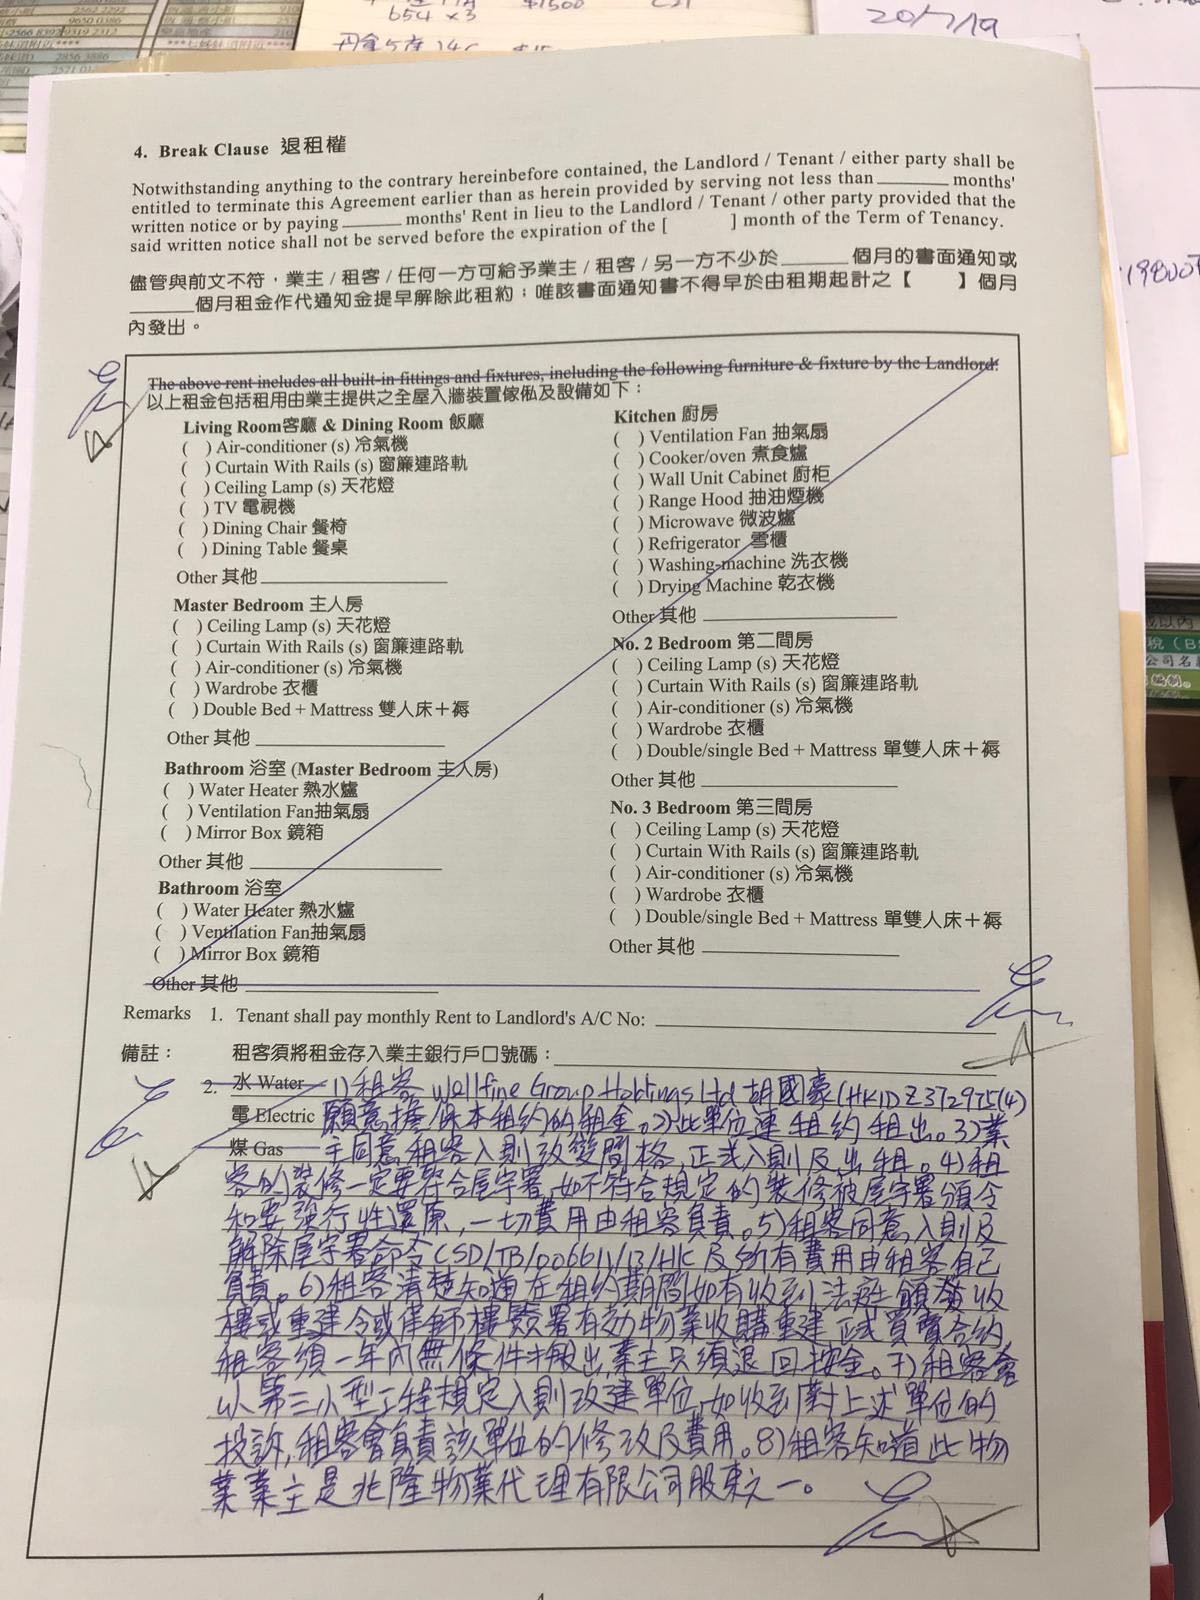 654 x3
$1500
20/7/19
9650 0386
2566 8392 9319 2312
2856 3886
19800
4. Break Clause 退租權
Notwithstanding anything to the contrary hereinbefore contained, the Landlord / Tenant / either party shall be
entitled to terminate this Agreement earlier than as herein provided by serving not less than ________ months'
written notice or by paying _______ months' Rent in lieu to the Landlord / Tenant / other party provided that the
said written notice shall not be served before the expiration of the [ ] month of the Term of Tenancy.
儘管與前文不符，業主 / 租客 / 任何一方可給予業主 / 租客 / 另一方不少於_______個月的書面通知或
_______個月租金作代通知金提早解除此租約；唯該書面通知書不得早於由租期起計之【 】個月
內發出。
The above rent includes all built-in fittings and fixtures, including the following furniture & fixture by the Landlord:
以上租金包括租用由業主提供之全屋入牆裝置傢俬及設備如下：
Living Room客廳 & Dining Room 飯廳
( ) Air-conditioner (s) 冷氣機
( ) Curtain With Rails (s) 窗簾連路軌
( ) Ceiling Lamp (s) 天花燈
( ) TV 電視機
( ) Dining Chair 餐椅
( ) Dining Table 餐桌
Other 其他
Master Bedroom 主人房
( ) Ceiling Lamp (s) 天花燈
( ) Curtain With Rails (s) 窗簾連路軌
( ) Air-conditioner (s) 冷氣機
( ) Wardrobe 衣櫃
( ) Double Bed + Mattress 雙人床＋褥
Other 其他
Bathroom 浴室 (Master Bedroom 主人房)
( ) Water Heater 熱水爐
( ) Ventilation Fan抽氣扇
( ) Mirror Box 鏡箱
Other 其他
Bathroom 浴室
( ) Water Heater 熱水爐
( ) Ventilation Fan抽氣扇
( ) Mirror Box 鏡箱
Other 其他
Kitchen 廚房
( ) Ventilation Fan 抽氣扇
( ) Cooker/oven 煮食爐
( ) Wall Unit Cabinet 廚柜
( ) Range Hood 抽油煙機
( ) Microwave 微波爐
( ) Refrigerator 雪櫃
( ) Washing-machine 洗衣機
( ) Drying Machine 乾衣機
Other 其他
No. 2 Bedroom 第二間房
( ) Ceiling Lamp (s) 天花燈
( ) Curtain With Rails (s) 窗簾連路軌
( ) Air-conditioner (s) 冷氣機
( ) Wardrobe 衣櫃
( ) Double/single Bed + Mattress 單雙人床＋褥
Other 其他
No. 3 Bedroom 第三間房
( ) Ceiling Lamp (s) 天花燈
( ) Curtain With Rails (s) 窗簾連路軌
( ) Air-conditioner (s) 冷氣機
( ) Wardrobe 衣櫃
( ) Double/single Bed + Mattress 單雙人床＋褥
Other 其他
Remarks 1. Tenant shall pay monthly Rent to Landlord's A/C No:
備註： 租客須將租金存入業主銀行戶口號碼：
2. 水 Water 1)租客 Wellfine Group Holdings Ltd 胡國豪(HKID Z372975(4)
電 Electric 願意擔保本租約的租金。2)此單位連租約租出。3)業
煤 Gas 主同意租客入則改變間格，正式入則及出租。4)租
客的裝修一定要符合屋宇署，如不符合規定的裝修被屋宇署頒令
和要強行性還原，一切費用由租客負責。5)租客同意入則及
解除屋宇署命令CSD/TB/006611/13/HK及所有費用由租客自己
負責。6)租客清楚知道在租約期間如有收到法庭頒發收
樓或重建令或律師樓簽署有効物業收購重建正式買賣合約，
租客須一年內無條件搬出，業主只須退回按金。7)租客會
以第三小型工程規定入則改建單位，如收到對上述單位的
投訴，租客會負責該單位的修改及費用。8)租客知道此物
業業主是兆隆物業代理有限公司股東之一。